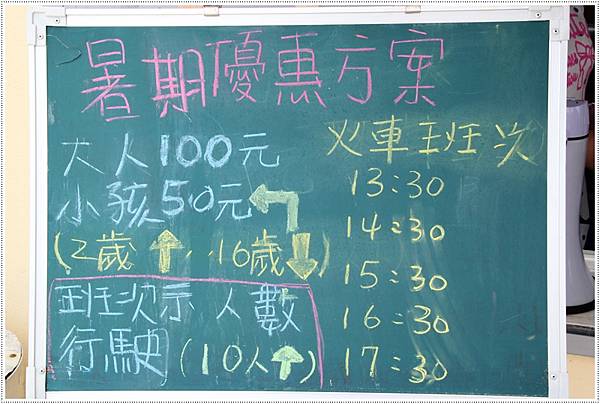 暑期優惠方案
大人100元
小孩50元
(2歲↑, 16歲↓)
班次示人數
行駛(10人↑)
火車班次
13:30
14:30
15:30
16:30
17:30